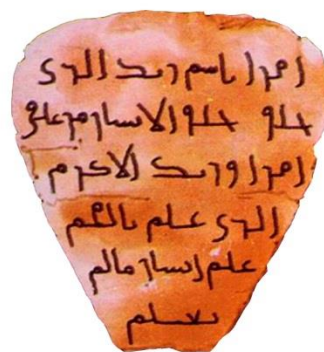 اقرا باسم ربك الذى
خلق خلق الانسان من علق
اقرا وربك الاكرم
الذى علم بالقلم
علم انسان مالم
يعلم